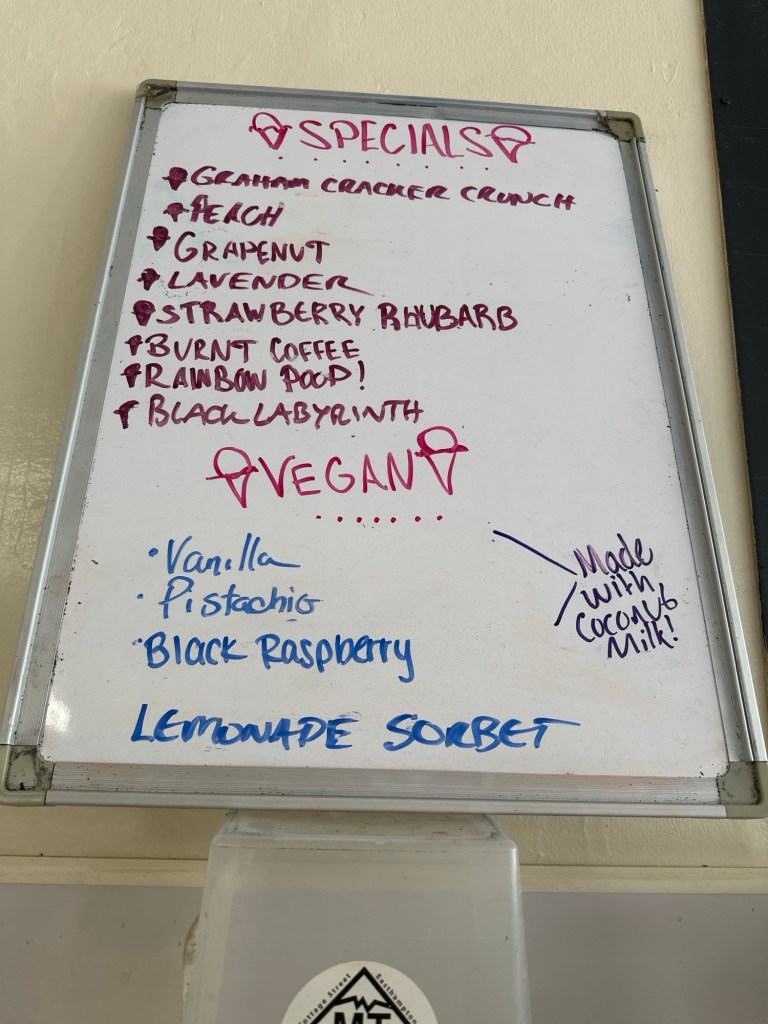 SPECIALS
GRAHAM CRACKER CRUNCH
PEACH
GRAPENUT
LAVENDER
STRAWBERRY RHUBARB
BURNT COFFEE
RAINBOW POOP!
BLACK LABYRINTH
VEGAN
• Vanilla
• Pistachio
• Black Raspberry
Made
with
Coconut
Milk!
LEMONADE SORBET
Cottage Street Easthampton
MT